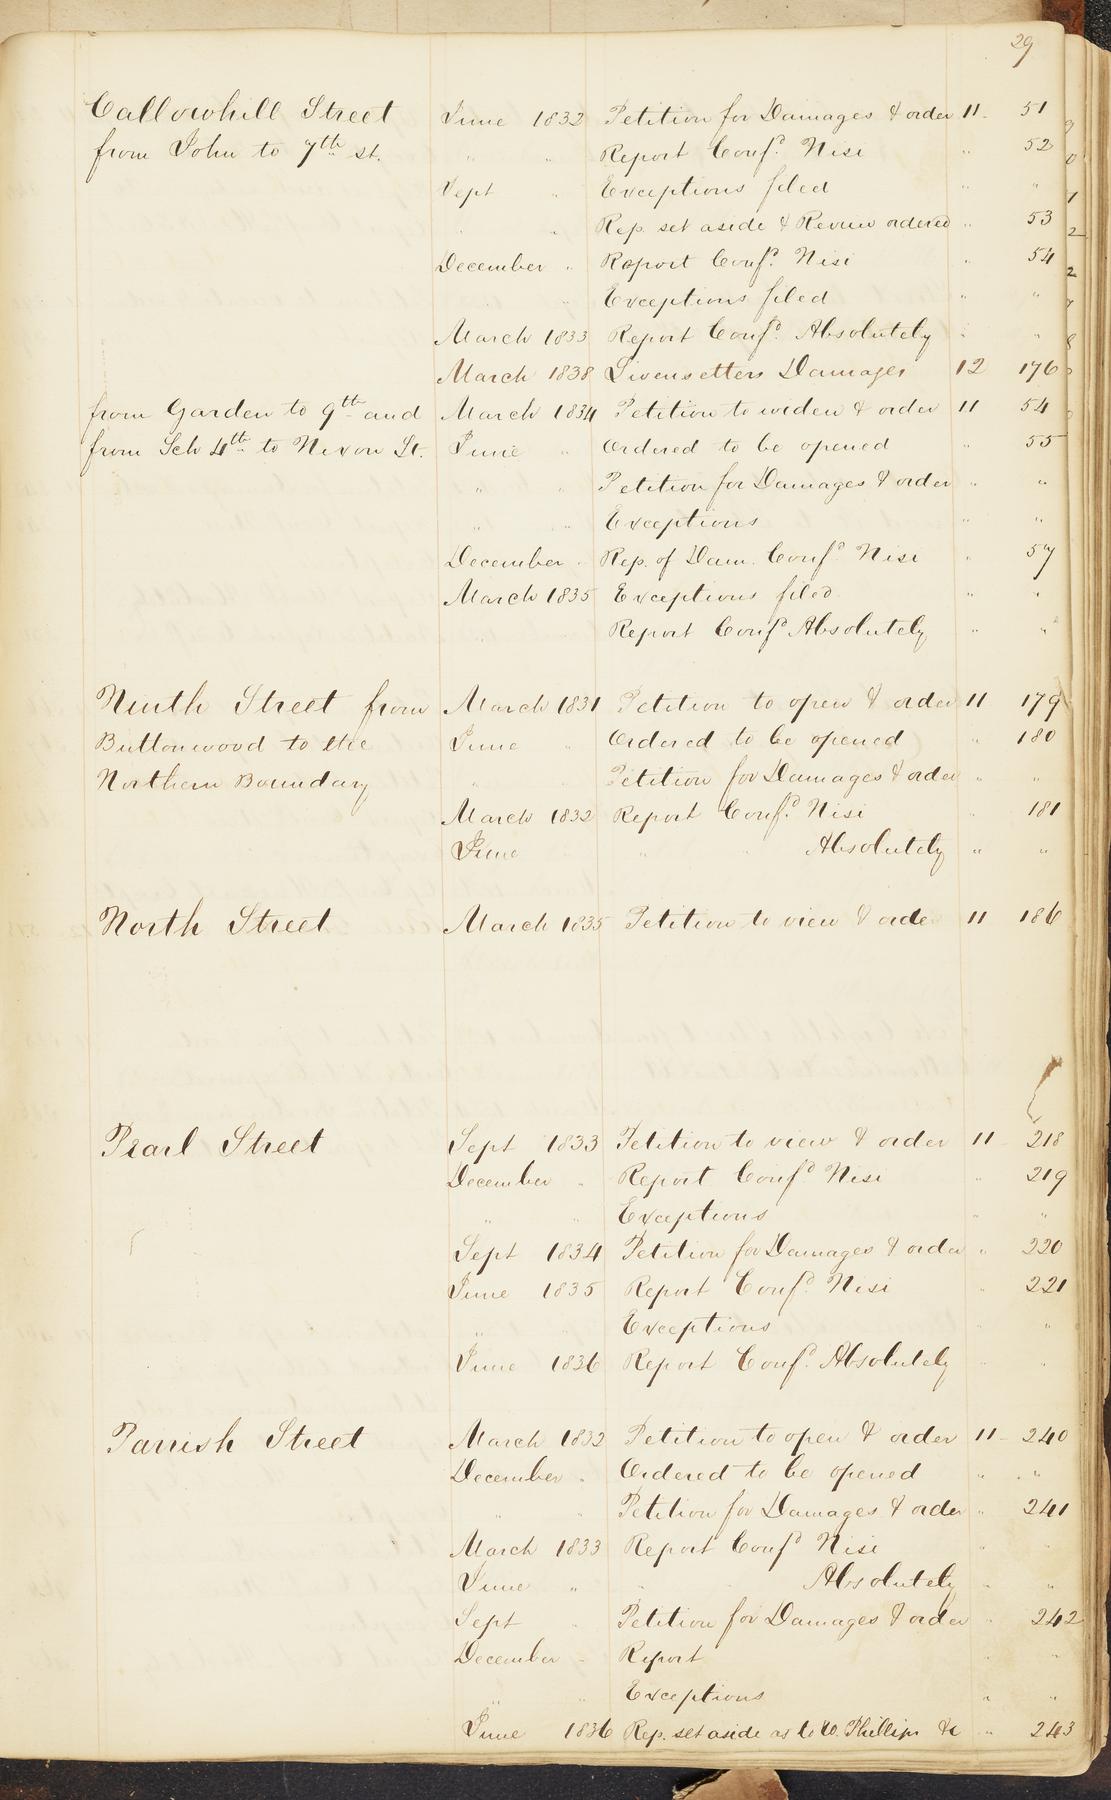 29
Callowhill Street June 1832 Petition for Damages & order 11 51
from John to 7th st. " " Report Conf.d Nisi " 52
Sept " Exceptions filed " "
" " Rep. set aside & Review ordered " 53
December " Report Conf.d Nisi " 54
" " Exceptions filed " "
March 1833 Report Conf.d Absolutely " "
March 1838 Damages 12 176
from Garden to 9th and March 1834 Petition to widen & order 11 54
from Sch 4th to Nixon St. June " Ordered to be opened " 55
" " Petition for Damages & order " "
" " Exceptions " "
December " Rep. of Dam. Conf.d Nisi " 57
March 1835 Exceptions filed " "
" Report Conf.d Absolutely " "
Ninth Street from March 1831 Petition to open & order 11 179
Buttonwood to the June " Ordered to be opened " 180
Northern Boundary " Petition for Damages & order " "
March 1832 Report Conf.d Nisi " 181
June " " " Absolutely " "
North Street March 1835 Petition to view & orde 11 186
Pearl Street Sept 1833 Petition to view & order 11 218
December " Report Conf.d Nisi " 219
" " Exceptions " "
Sept 1834 Petition for Damages & order " 220
June 1835 Report Conf.d Nisi " 221
" " Exceptions " "
June 1836 Report Conf.d Absolutely " "
Parrish Street March 1832 Petition to open & order 11 240
December " Ordered to be opened " "
" " Petition for Damages & order " 241
March 1833 Report Conf.d Nisi " "
June " " " Absolutely " "
Sept " Petition for Damages & order " 242
December " Report " "
" " Exceptions " "
June 1836 Rep. set aside as to W. Phillips &c " 243